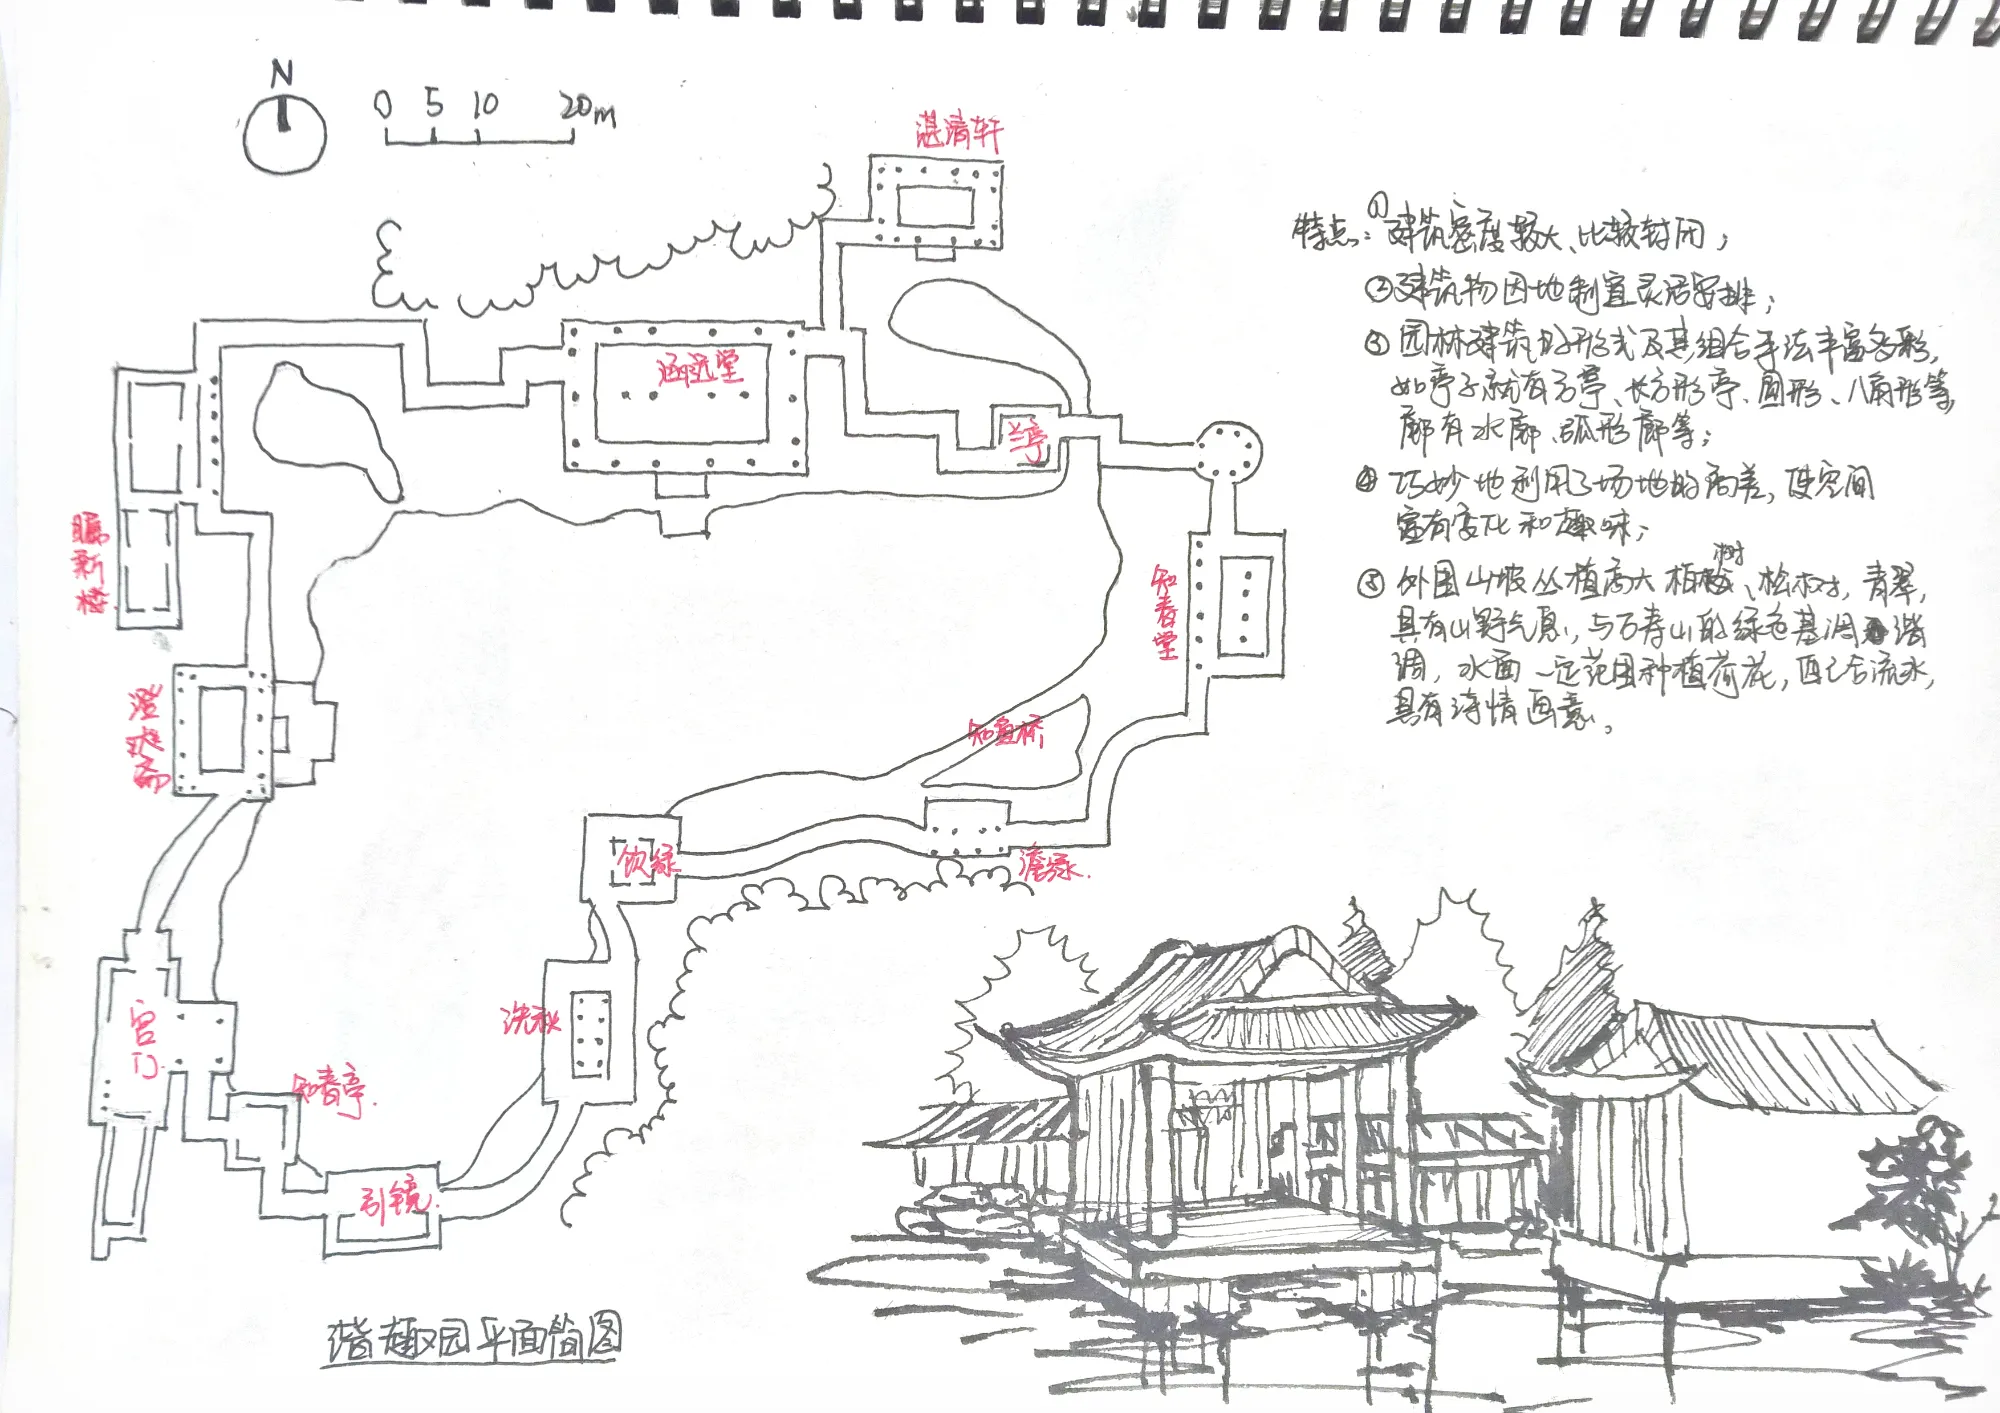 N
0 5 10 20m
湛清轩
涵远堂
兰亭
瞩新楼
知春堂
澄爽斋
知鱼桥
饮绿
澹绿.
洗秋
宫门
知春亭.
引镜.
谐趣园平面简图
特点: ①建筑密度较大、比较封闭;
②建筑物因地制宜灵活安排;
③园林建筑的形式及其组合手法丰富多彩,
如亭子就有方亭、长方形亭、圆形、八角形等,
廊有水廊、弧形廊等;
④巧妙地利用了场地的高差,使空间
富有变化和趣味;
⑤外围山坡丛植高大柏树、松树,青翠,
具有山野气息,与万寿山的绿色基调谐
调,水面一定范围种植荷花,配合流水,
具有诗情画意。